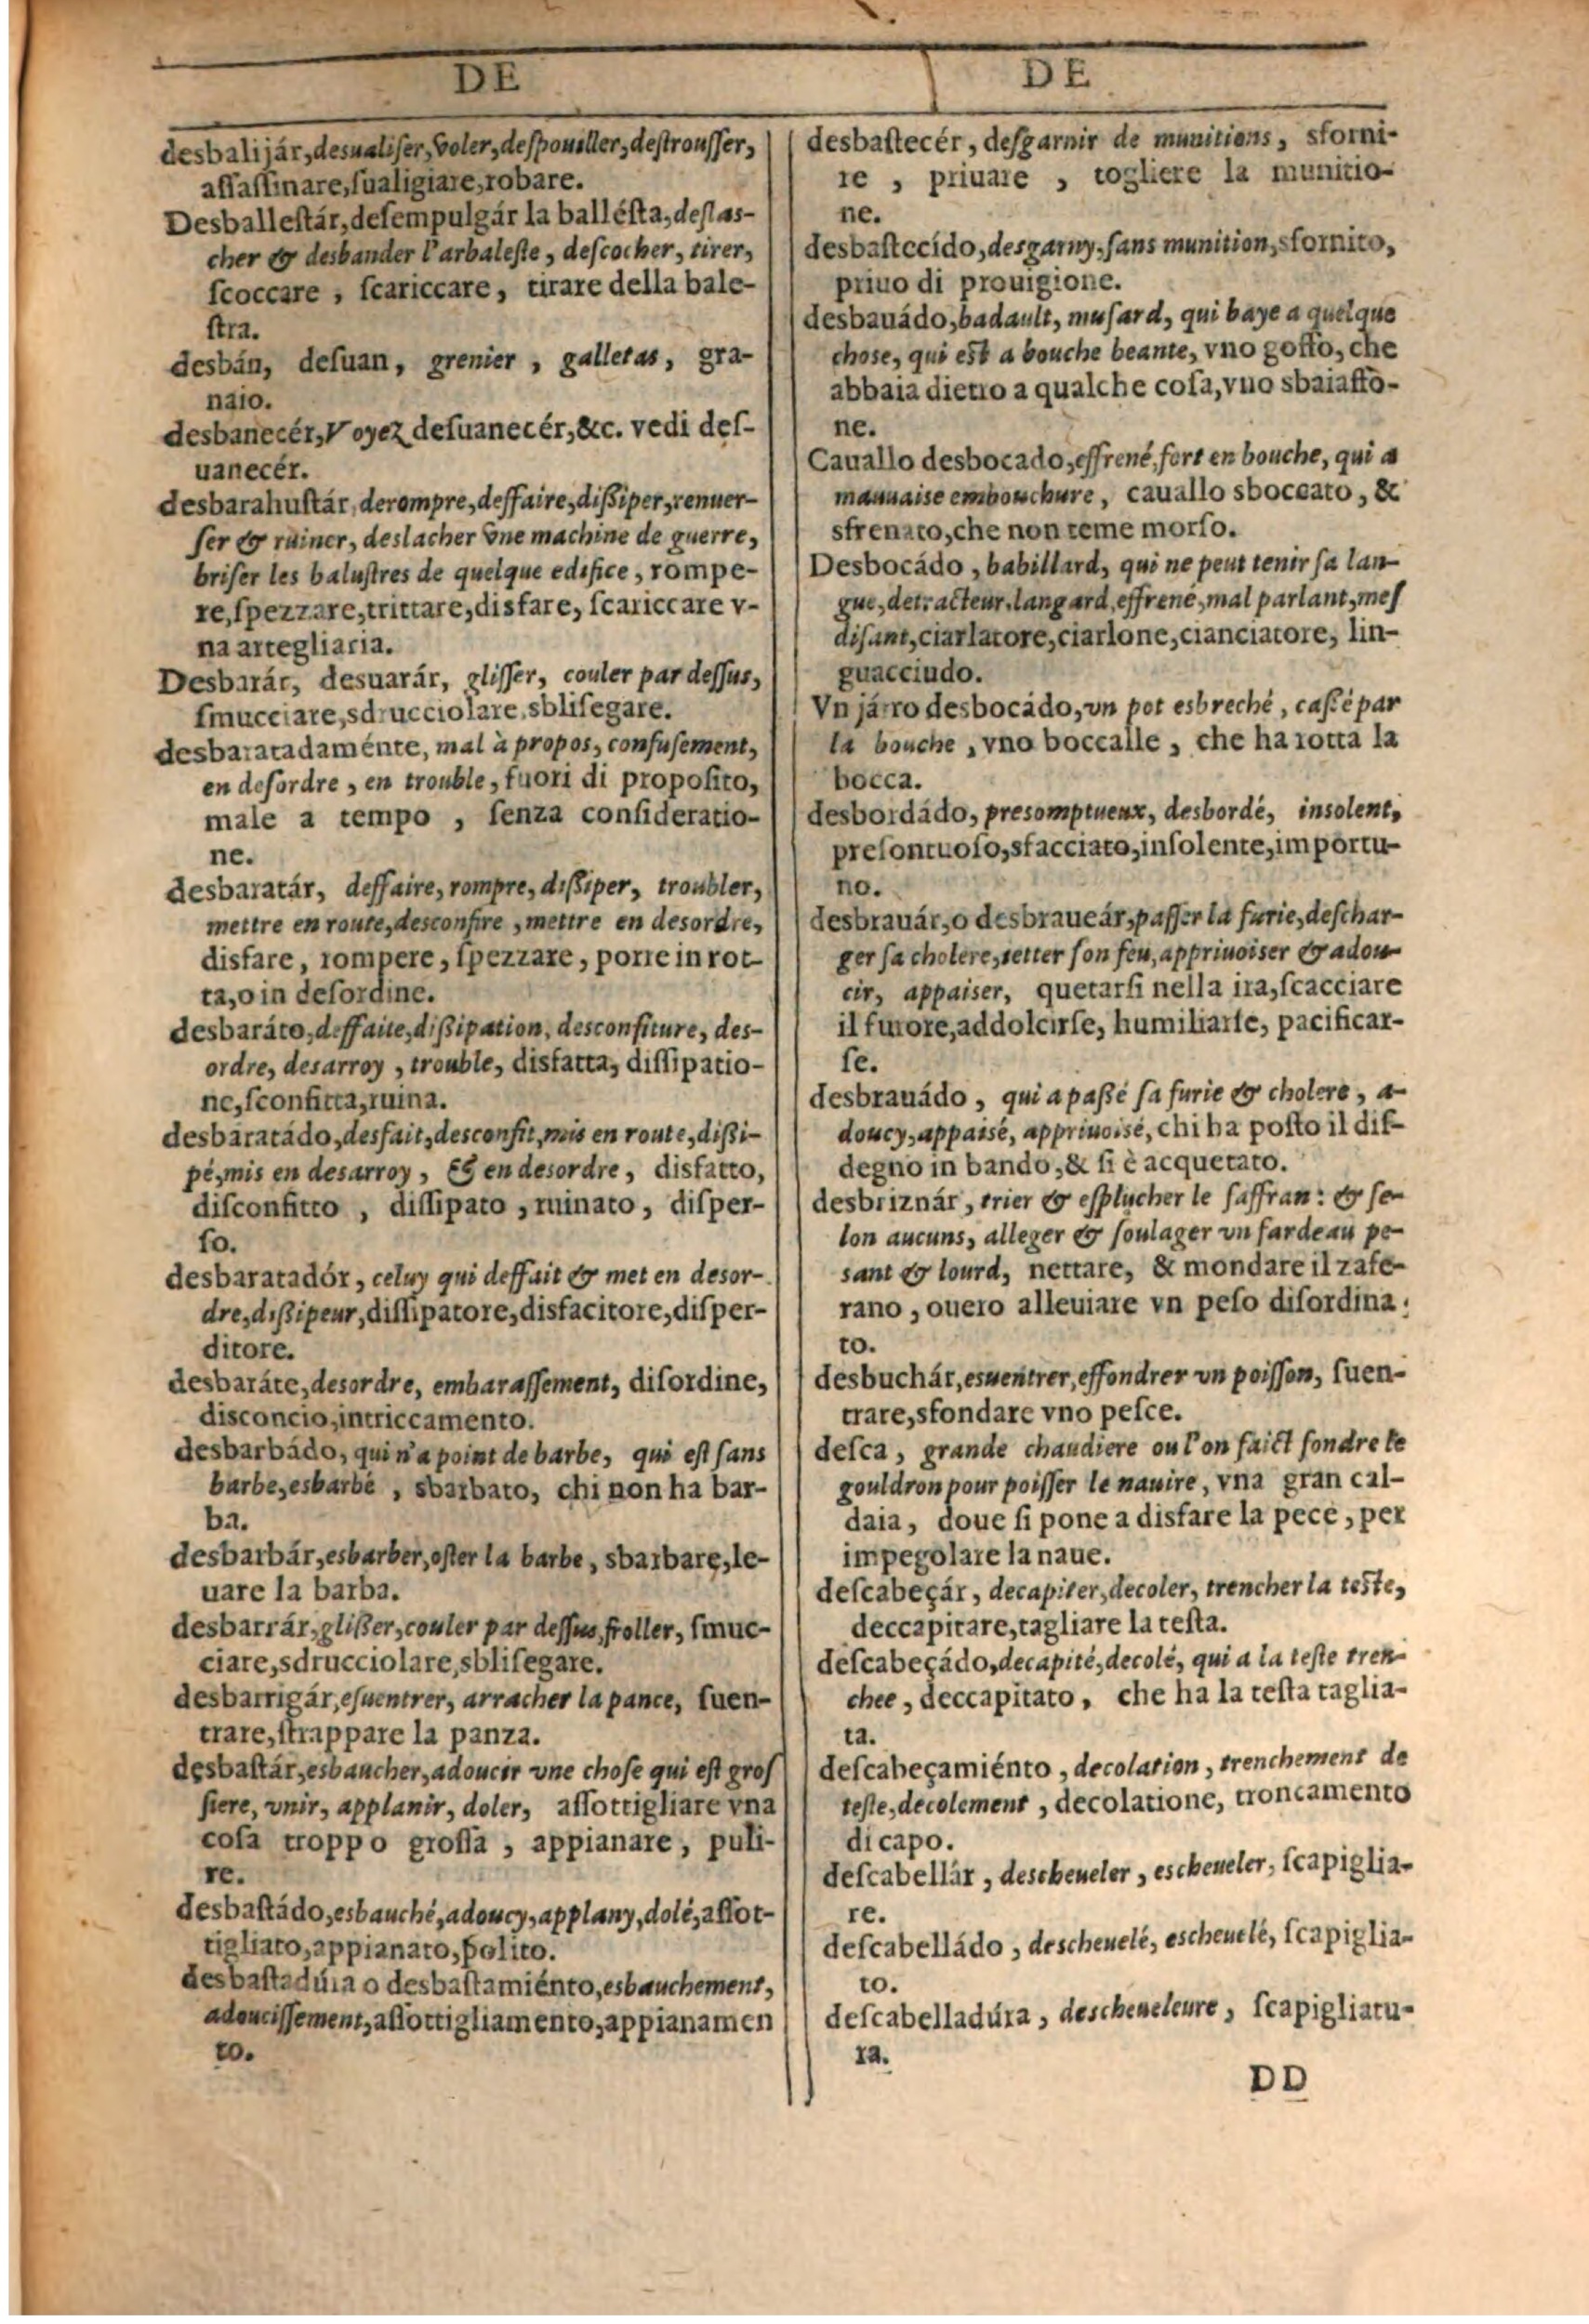 DE
desbalijár, desualiser, voler, despouiller, destrousser,
assassinare, sualigiare, robare.
Desballestár, desempulgár la ballésta, deslas-
cher & desbander l'arbaleste, descocher, tirer,
scoccare, scariccare, tirare della bale-
stra.
desbán, desuan, grenier, galletas, gra-
naio.
desbanecér, Voyez desuanecér, &c. vedi des-
uanecér.
desbarahustár, derompre, deffaire, dissiper, renuer-
ser & ruiner, deslacher vne machine de guerre,
briser les balustres de quelque edifice, rompe-
re, spezzare, trittare, disfare, scariccare v-
na artegliaria.
Desbarár, desuarár, glisser, couler par dessus,
smucciare, sdrucciolare, sblisegare.
desbaratadaménte, mal à propos, confusement,
en desordre, en trouble, fuori di proposito,
male a tempo, senza consideratio-
ne.
desbaratár, deffaire, rompre, dissiper, troubler,
mettre en route, desconfire, mettre en desordre,
disfare, rompere, spezzare, porre in rot-
ta, o in desordine.
desbaráto, deffaite, dissipation, desconfiture, des-
ordre, desarroy, trouble, disfatta, dissipatio-
ne, sconfitta, ruina.
desbaratádo, desfait, desconfit, mis en route, dissi-
pé, mis en desarroy, & en desordre, disfatto,
disconfitto, dissipato, ruinato, disper-
so.
desbaratadór, celuy qui deffait & met en desor-
dre, dissipeur, dissipatore, disfacitore, disper-
ditore.
desbaráte, desordre, embarassement, disordine,
disconcio, intriccamento.
desbarbádo, qui n'a point de barbe, qui est sans
barbe, esbarbé, sbarbato, chi non ha bar-
ba.
desbarbár, esbarber, oster la barbe, sbarbare, le-
uare la barba.
desbarrár, glisser, couler par dessus, froller, smuc-
ciare, sdrucciolare, sblisegare.
desbarrigár, esuentrer, arracher la pance, suen-
trare, strappare la panza.
desbastár, esbaucher, adoucir vne chose qui est gros
siere, vnir, applanir, doler, assottigliare vna
cosa troppo grossa, appianare, puli-
re.
desbastádo, esbauché, adoucy, applany, dolé, assot-
tigliato, appianato, polito.
desbastadúra o desbastamiénto, esbauchement,
adoucissement, assottigliamento, appianamen
to.
DE
desbastecér, desgarnir de munitions, sforni-
re, priuare, togliere la munitio-
ne.
desbastecído, desgarny, sans munition, sfornito,
priuo di prouigione.
desbauádo, badault, musard, qui baye a quelque
chose, qui est a bouche beante, vno goffo, che
abbaia dietro a qualche cosa, vno sbaiaffo-
ne.
Cauallo desbocado, effrené, fort en bouche, qui a
mauuaise embouchure, cauallo sboccato, &
sfrenato, che non teme morso.
Desbocádo, babillard, qui ne peut tenir sa lan-
gue, detracteur, langard, effrené, mal parlant, mes
disant, ciarlatore, ciarlone, cianciatore, lin-
guacciudo.
Vn járro desbocádo, vn pot esbreché, cassé par
la bouche, vno boccalle, che ha rotta la
bocca.
desbordádo, presomptueux, desbordé, insolent,
presontuoso, sfacciato, insolente, importu-
no.
desbrauár, o desbraueár, passer la furie, deschar-
ger sa cholere, ietter son feu, appriuoiser & adou-
cir, appaiser, quetarsi nella ira, scacciare
il furore, addolcirse, humiliarse, pacificar-
se.
desbrauádo, qui a passé sa furie & cholere, a-
doucy, appaisé, appriuoisé, chi ha posto il dis-
degno in bando, & si è acquetato.
desbriznár, trier & esplucher le saffran: & se-
lon aucuns, alleger & soulager vn fardeau pe-
sant & lourd, nettare, & mondare il zafe-
rano, ouero alleuiare vn peso disordina-
to.
desbuchár, esuentrer, effondrer vn poisson, suen-
trare, sfondare vno pesce.
desca, grande chaudiere ou l'on faict fondre le
gouldron pour poisser le nauire, vna gran cal-
daia, doue si pone a disfare la pece, per
impegolare la naue.
descabeçár, decapiter, decoler, trencher la teste,
deccapitare, tagliare la testa.
descabeçádo, decapité, decolé, qui a la teste tren-
chee, deccapitato, che ha la testa taglia-
ta.
descabeçamiénto, decolation, trenchement de
teste, decolement, decolatione, troncamento
di capo.
descabellár, descheueler, escheueler, scapiglia-
re.
descabelládo, descheuelé, escheuelé, scapiglia-
to.
descabelladúra, descheueleure, scapigliatu-
ra.
DD